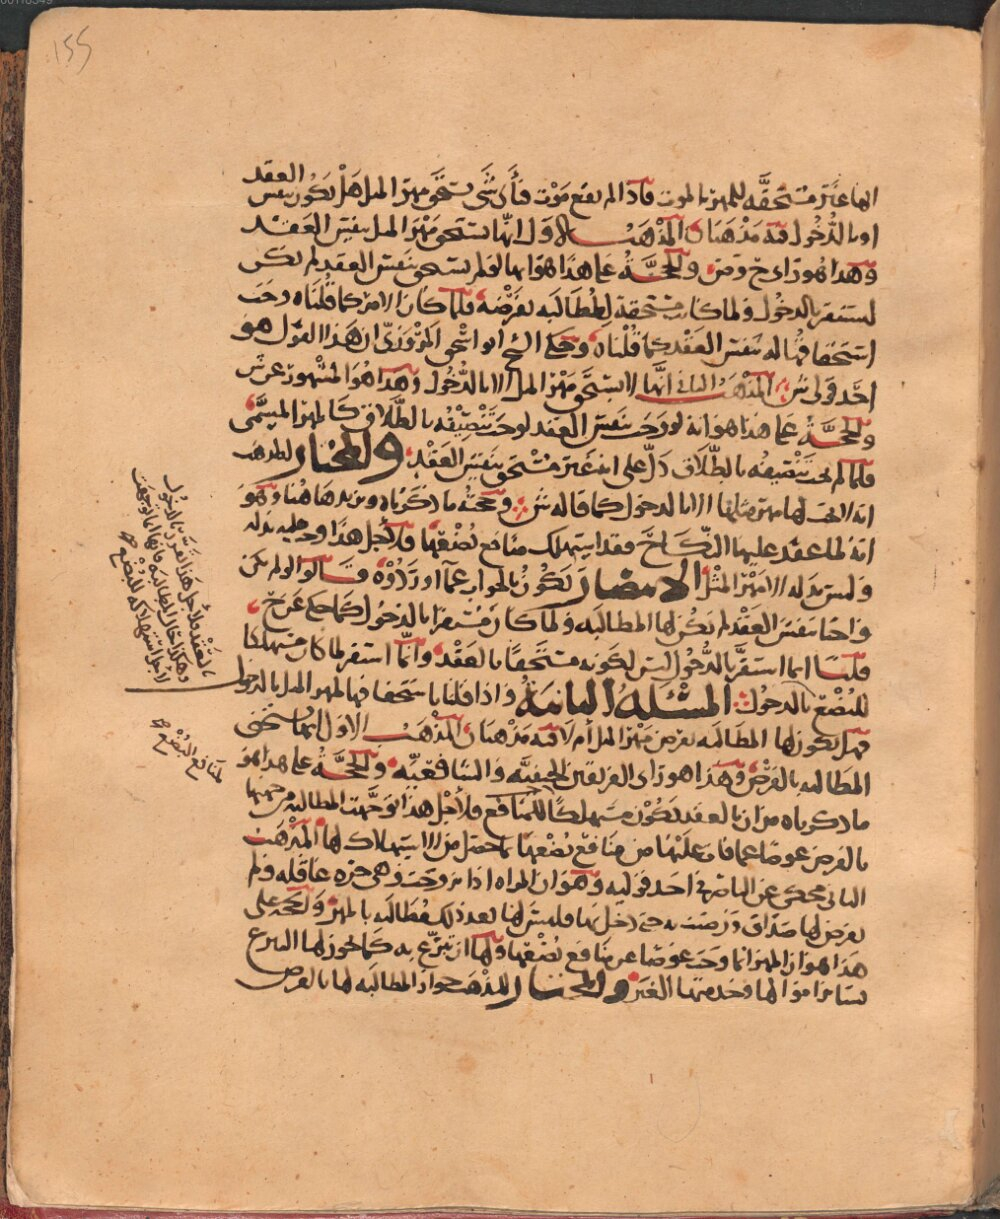 155
انها غير مستحقه للمهر بالموت فاذا لم يقع موت فأي شي تستحق مهر المثل هل يكون بنفس العقد
او بالدخول فيه مذهبان المذهب الاول انها تستحق مهر المثل بنفس العقد
وهذا هو راي ح و والحجة على هذا هو انها لو لم تستحق بنفس العقد لم يكن
ليستقر بالدخول ولما كانت مستحقة للمطالبه بفرضه فلما كان الامر كما قلناه وجب
استحقاقها له بنفس العقد كما قلناه وحكى الشيخ ابو اسحق المروزي ان هذا القول هو
احد قولي ش المذهب الثاني انها لا تستحق مهر المثل الا بالدخول وهذا هو المشهور عن ش
والحجة على هذا هو انه لو وجب بنفس العقد لوجب تنصيفه بالطلاق كالمهر المسمى
فلما لم يجب تنصيفه بالطلاق دل على انه غير مستحق بنفس العقد والمختار
انه لا يجب لها مهر مثلها الا بالدخول كما قاله ش وحجته ما ذكرناه ونزيد هاهنا وهو
انه لما عقد عليها النكاح فقد استهلك منافع بضعها فلاجل هذا وجب بدله
وليس بدله الا مهر المثل الانتصار يكون بالجواب عما اوردوه قالوا لو لم يكن
واجبا بنفس العقد لم يكن لها المطالبه ولما كان مستقرا بالدخول كما حكي عن ح
قلنا انما استقر بالدخول ليس لكونه مستحقا بالعقد وانما استقر لما كان مستهلكا
للبضع بالدخول المسئلة الثانية واذا قلنا باستحقاقها لمهر المثل بالدخول
فهل يكون لها المطالبه بفرض مهر المثل أم لا فيه مذهبان المذهب الاول انها تستحق
المطالبه بالفرض وهذا هو راى الفريقين الحنفيه والشافعيه والحجة على هذا هو
ما ذكرناه من ان بالعقد يكون مستهلكا للمنافع فلاجل هذا توجهت المطالبة من جهتها
بالفرض عوضا عما فات عليها من منافع بضعها بما حصل من الاستهلاك لها المذهب
الثاني محكي عن الناصر في احد قوليه وهو ان المراه اذا تزوجت وهي حره عاقله ولم
يفرض لها صداق ورضيت به حتى دخل بها فليس لها بعد ذلك مطالبه بالمهر والحجه على
هذا هو ان المهر انما وجب عوضا عن منافع بضعها ولها ان تتبرع به كما يجوز لها التبرع
بسائر اموالها وخدمتها الغير والمختار للمذهب جواز المطالبه لها بالفرض
بالعقد فلاجل هذا تقرر بالدخول
وهكذا حال المطالبه فانها انما توجهت
لاجل استهلاكه للبضع
لمنافع البضع